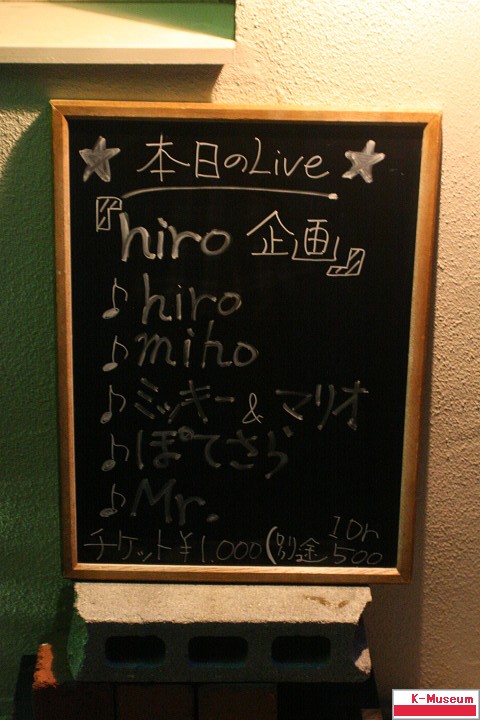 ★ 本日のLive ★
『hiro 企画』
♪ hiro
♪ miho
♪ ミッキー & マリオ
♪ ぽてさら
♪ Mr.
チケット ¥1.000 (別途 1Dr 500
K-Museum